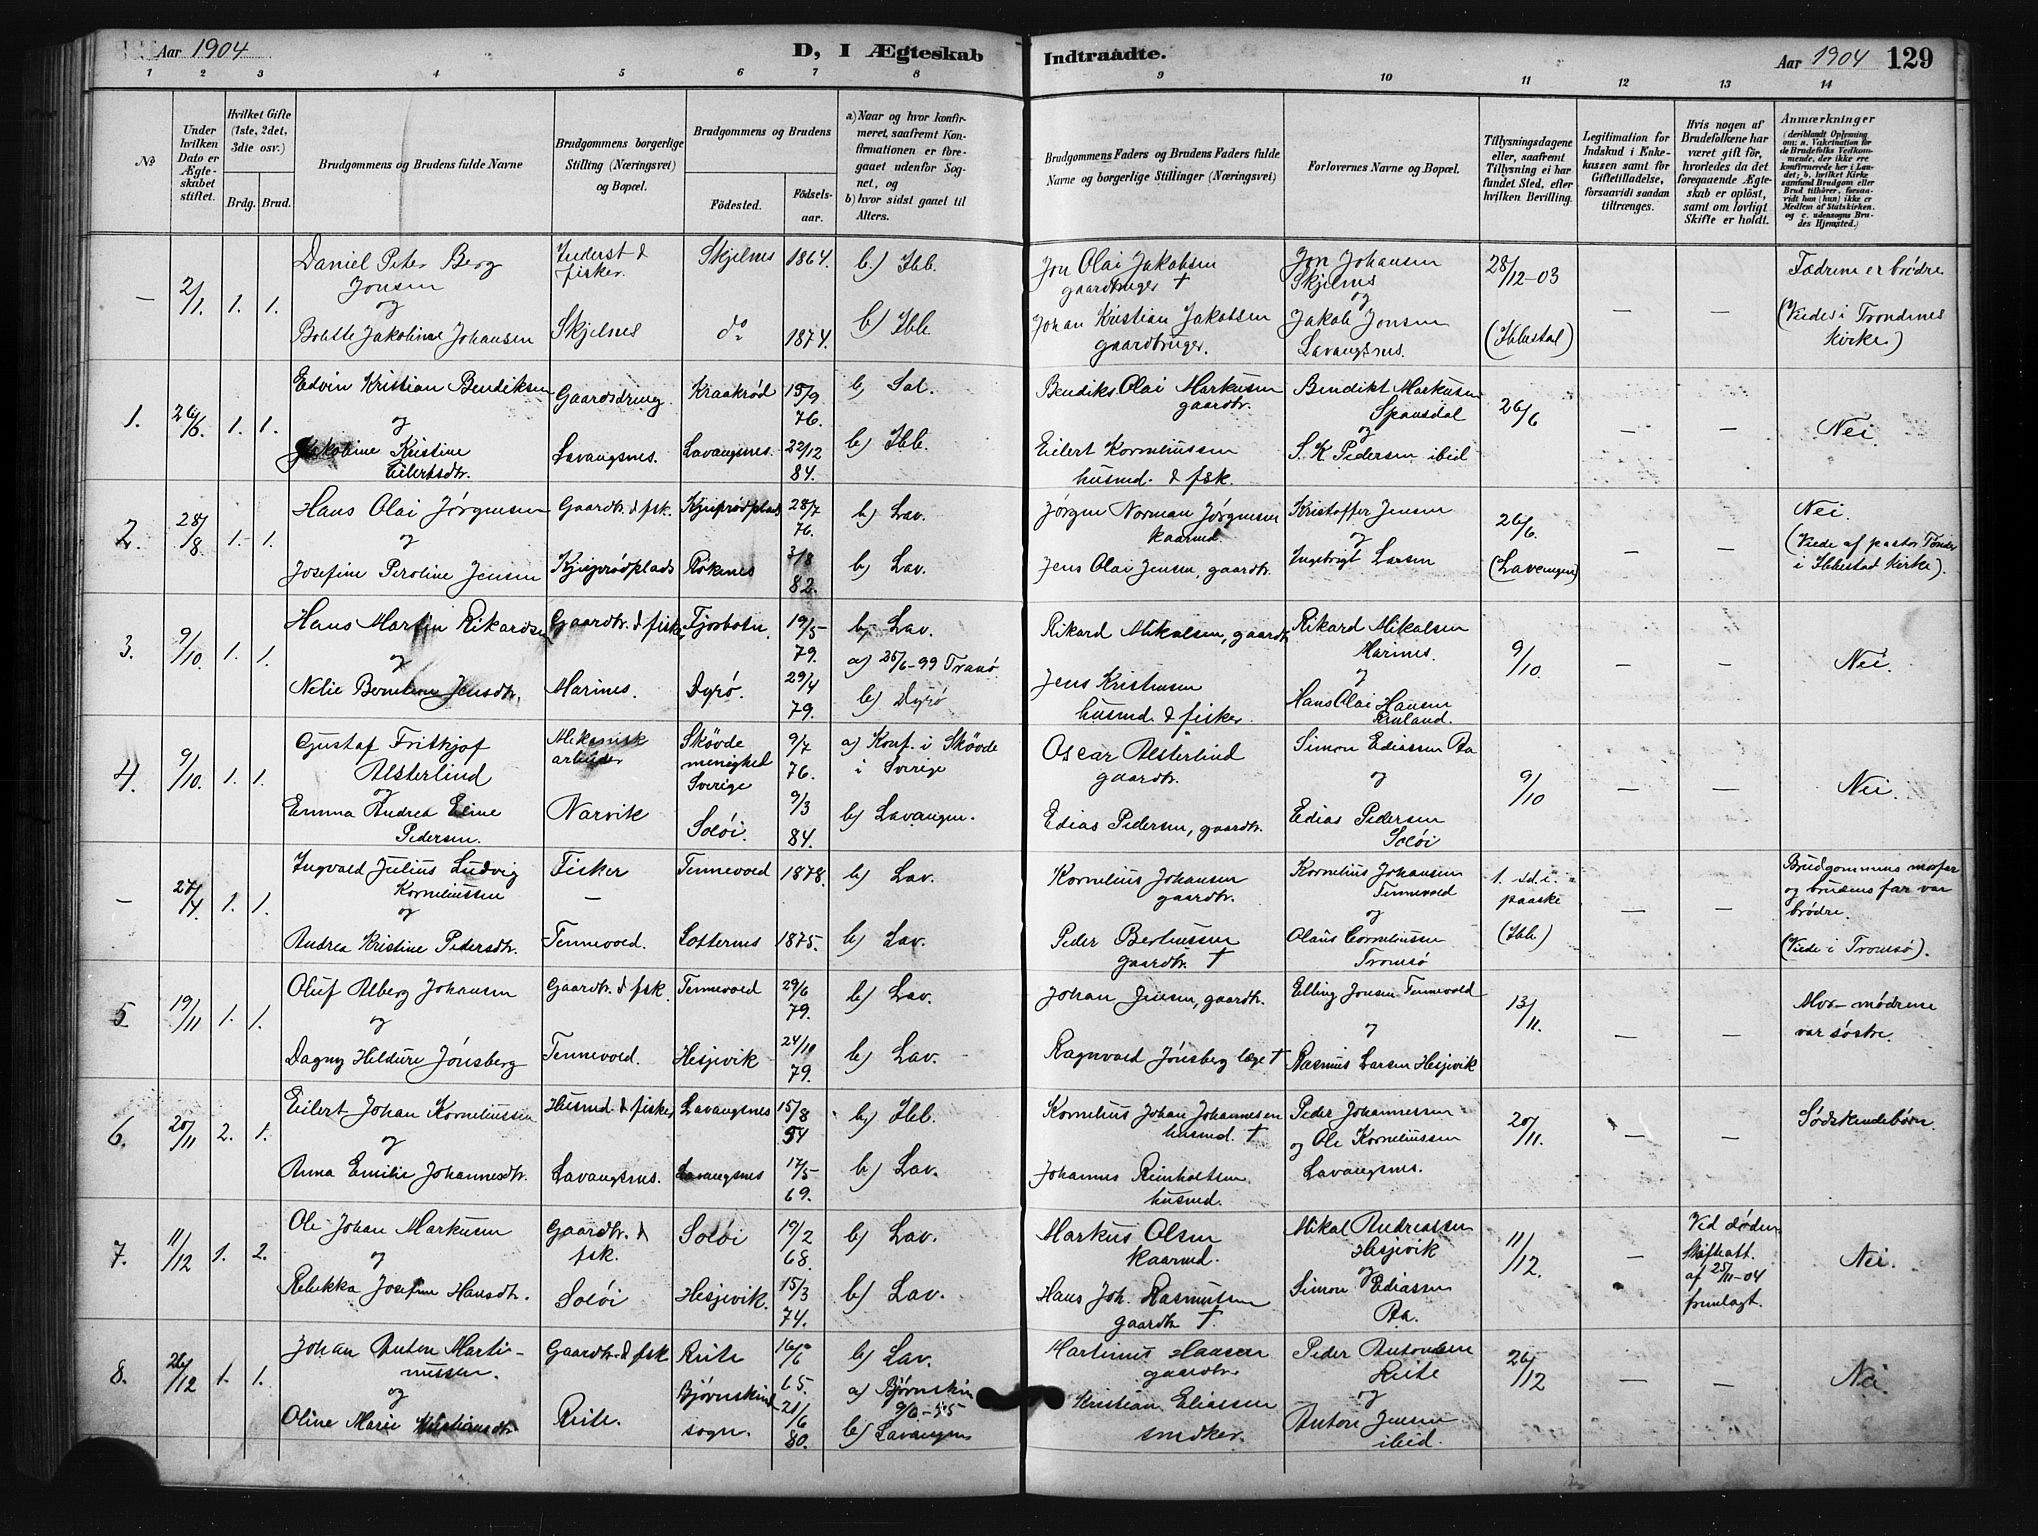 Aar 1904
D, I Ægteskab
Indtraadte.
Aar 1904
129
1 2 3 4 5 6 7 8 9 10 11 12 13 14
No
Under hvilken Dato er Ægteskabet stiftet.
Hvilket Gifte (1ste, 2det, 3die osv.)
Brdg. Brud.
Brudgommens og Brudens fulde Navne
Brudgommens borgerlige Stilling (Næringsvei) og Bopæl.
Brudgommens og Brudens
Fødested.
Fødselsaar.
a) Naar og hvor konfirmeret, saafremt Konfirmationen er foregaaet udenfor Sognet, og
b) hvor sidst gaaet til Alters.
Brudgommens Faders og Brudens Faders fulde Navne og borgerlige Stillinger (Næringsvei)
Forlovernes Navne og Bopæl.
Tillysningsdagene eller, saafremt Tillysning ei har fundet Sted, efter hvilken Bevilling.
Legitimation for Indskud i Enkekassen samt for Giftetilladelse, forsaavidt saadan tiltrænges.
Hvis nogen af Brudefolkene har været gift før, hvorledes da det foregaaende Ægteskab er opløst, samt om lovligt Skifte er holdt.
Anmærkninger
(deriblandt Oplysning om: a. Vaksination for de Brudefolks Vedkommende, der ikke ere konfirmerede her i Landet; b. hvilket Kirkesamfund Brudgom eller Brud tilhører, forsaavidt han (hun) ikke er Medlem af Statskirken, og c. udensogns Brudes Hjemsted.)
– 2/1 1. 1. Daniel Peter Berg Jonsen Inderst & fisker. Skjelnes 1864. b.) Ibb. Jon Olai Jakobsen gaardbruger † Jon Johansen Skjelnes 28/12-03 – – Fædrene er brødre
og
Bolette Jakobine Johansen Skjelnes do 1874. b) Ibb. Johan Kristian Jakobsen gaardbruger. og Jakob Jonsen Lavangsnes. (Ibbestad) (Viede i Trondenes Kirke)
1. 26/6. 1. 1. Edvin Kristian Bendiksen Gaardsdreng Kraakrød 15/9 76. b) Sal. Bendiks Olai Markusen gaardbr. Bendikt Markusen Spansdal 26/6 – – Nei.
og
Jakobine Kristine Eilertsdtr. Lavangsnes. Lavangsnes. 22/12 84. b) Ibb. Eilert Korneliussen husmd. & fsk. og S. K. Pedersen ibid
2. 28/8 1. 1. Hans Olai Jørgensen Gaardbr. & fsk. 28/7 76. b) Lav. Jørgen Norman Jørgensen kaarmd. Kristoffer Jensen 26/6. – – Nei.
og
Josefine Peroline Jensen Røkenes 3/8 82. b) Lav. Jens Olai Jensen, gaardbr. og Ingebrigt Larsen (Lavangen) (Viede af pastor Tønder i Ibbestad Kirke).
3. 9/10. 1. 1. Hans Martin Rikardsen Gaardbr. & fisker Fjordbotn. 19/5 79. b) Lav. Rikard Mikalsen, gaardbr. Rikard Mikalsen Marines. 9/10 – – Nei.
og
Nelie Berntine Jensdtr. Marines. Dyrø. 29/4 79. a) 25/6-99 Tranø b) Dyrø Jens Kristiansen husmd. & fisker. og Hans Olai Hansen
4. 9/10. 1. 1. Gustaf Fritkjof Alsterlind Mekanisk arbeider Skövde menighed Sverige 9/7 76. a) Konf. i Skövde i Sverige Oscar Alsterlind gaardbr. Simon Ediassen Aa 9/10 – – Nei.
og
Emma Andrea Eline Pedersen. Narvik Soløi. 9/3 84. b) Lavangen. Edias Pedersen, gaardbr. og Edias Pedersen Soløi
– 27/4. 1. 1. Ingvald Julius Ludvig Korneliussen Fisker – Tennevold 1878. b) Lav. Kornelius Johansen gaardbr. Kornelius Johansen Tennevold 1. sd. i paaske – – Brudgommens morfar og brudens far var brødre.
og
Andrea Kristine Pedersdtr. Tennevold. Sotternes 1875. b) Lav. Peder Bertiussen gaardbr. † og Olaus Corneliussen Tromsø (Ibb) (Viede i Tromsø).
5. 19/11 1. 1. Oluf Alberg Johansen Gaardbr. & fsk. Tennevold 29/6 79. b) Lav. Johan Jensen, gaardbr. Elling Jonsen Tennevold 13/11. – – Mor– mødrene var søstre.
og
Dagny Hildure Jönsberg Tennevold. Hesjevik 24/10 79. b) Lav. Ragnvald Jönsberg læge † og Rasmus Larsen Hesjevik
6. 20/11 2. 1. Eilert Johan Korneliussen Husmd. & fisker Lavangsnes 15/8 54 b) Ibb. Kornelius Johan Johannesen husmd. † Peder Johannessen og Ole Korneliussen Lavangsnes. 20/11. – – Sødskendebørn.
og
Anna Emilie Johannesdtr. Lavangsnes. Lavangsnes 17/5 69. b) Lav. Johannes Reinholtsen husmd.
7. 11/12 1. 2. Ole Johan Markusen Gaardbr. & fsk. Soløi 19/2 68. b) Lav. Markus Olsen kaarmd. Mikal Andreassen Hesjevik 11/12. – Ved døden Skifteatt. af 25/11-04 fremlagt. Nei.
og
Rebekka Josefine Hansdtr. Soløi Hesjevik. 15/3 74. b) Lav. Hans Joh. Rasmussen gaardbr †. og Simon Ediassen Aa.
8. 26/12 1. 1. Johan Anton Martinussen. Gaardbr. & fsk Reite 16/6 65. b) Lav. Martinus Hansen gaardbr. Peder Antonsen Reite 26/12 – – Nei.
og
Oline Marie Kristiansdtr. Reite. Bjørnskind sogn. 21/6 80. a) Bjørnskin 9/6-95 b) Lavangen Kristian Eliassen snedker. og Anton Jensen ibid.